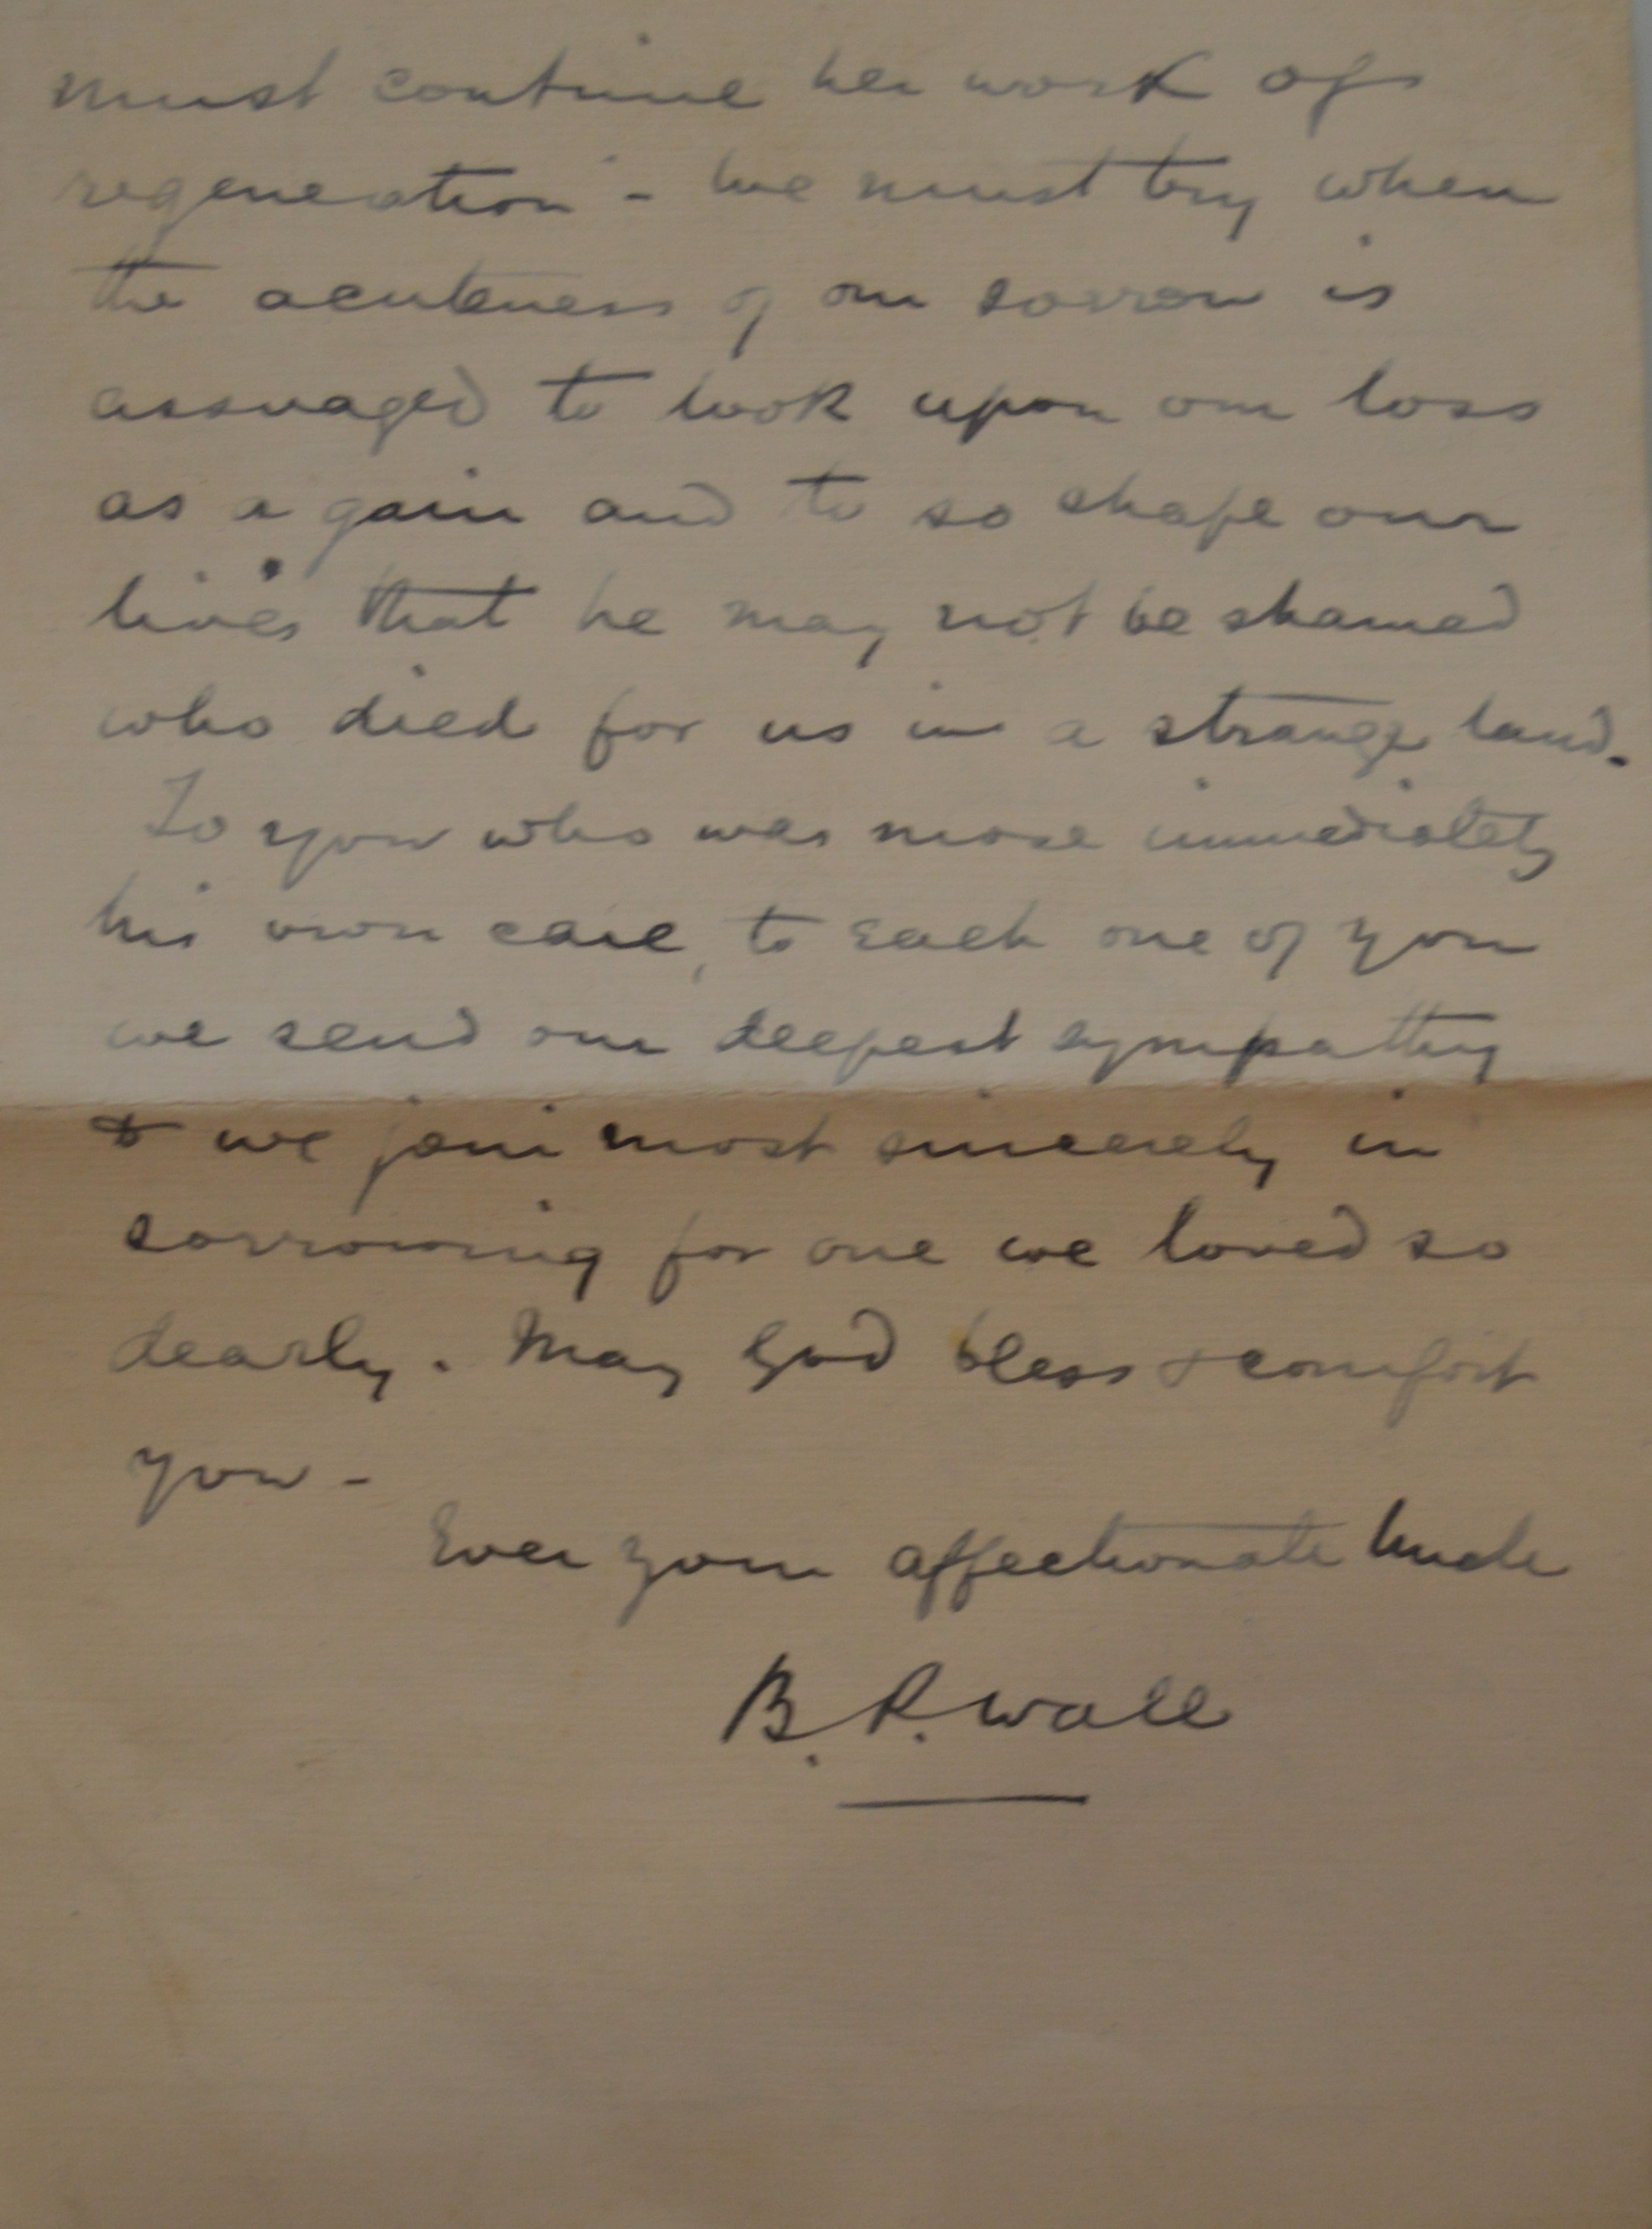 must continue her work of
regeneration - We must try when
the acuteness of our sorrow is
assuaged to look upon our loss
as a gain and to so shape our
lives that he may not be shamed
who died for us in a strange land.
To you who was more immediately
his own care, to each one of you
we send our deepest sympathy
& we join most sincerely in
sorrowing for one we loved so
dearly. May God bless & comfort
you -
Ever your affectionate Uncle
B. R. Wall